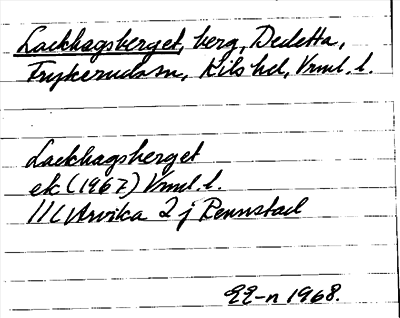 Lackhagsberget, berg, Dedetta,
Trykerudssn, Kils hd, Vrml. l.
Lackhagsberget
ek (1967) Vrml. l.
11C Arvika 2 j Rennstad
EE-n 1968.